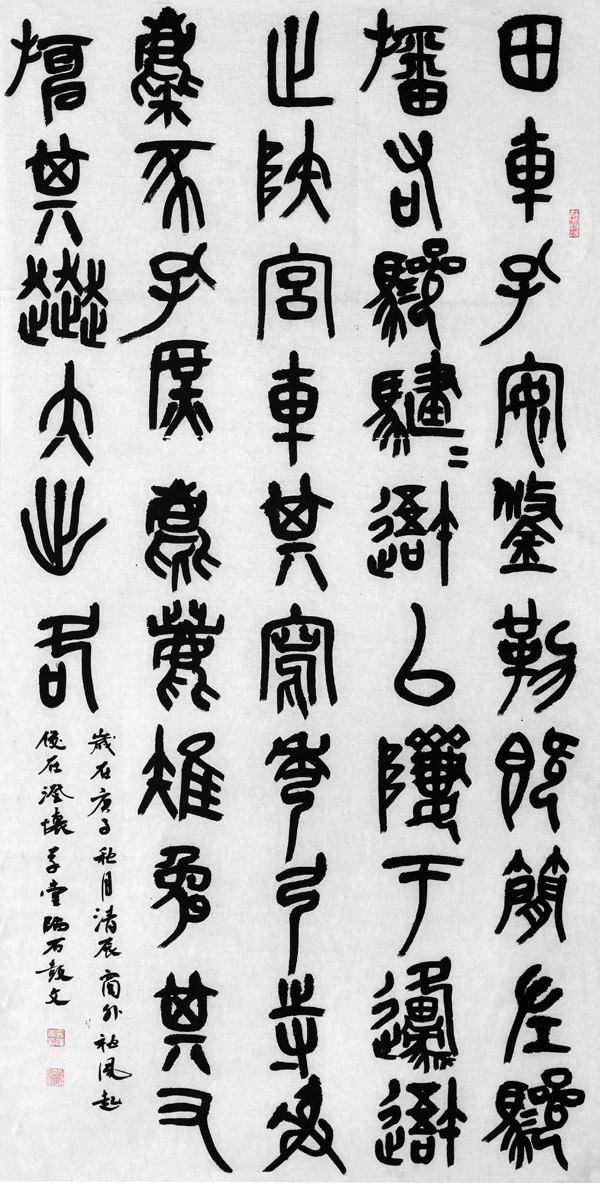 田車孔安鋚勒既簡左驂
旛右驂騝〻吾以隮于邍吾
止陝宮車其寫秀弓寺射
麋豕孔庶麀鹿雉兔其又
旃其奔大出各
歲在庚子秋月清辰窗外秋風起
俊在澄懷草堂臨石鼓文